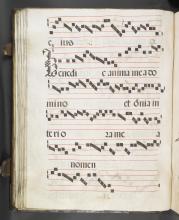 c tuo
Benedic anima mea do
mino et o̅nia in
terio ra me a
nomen